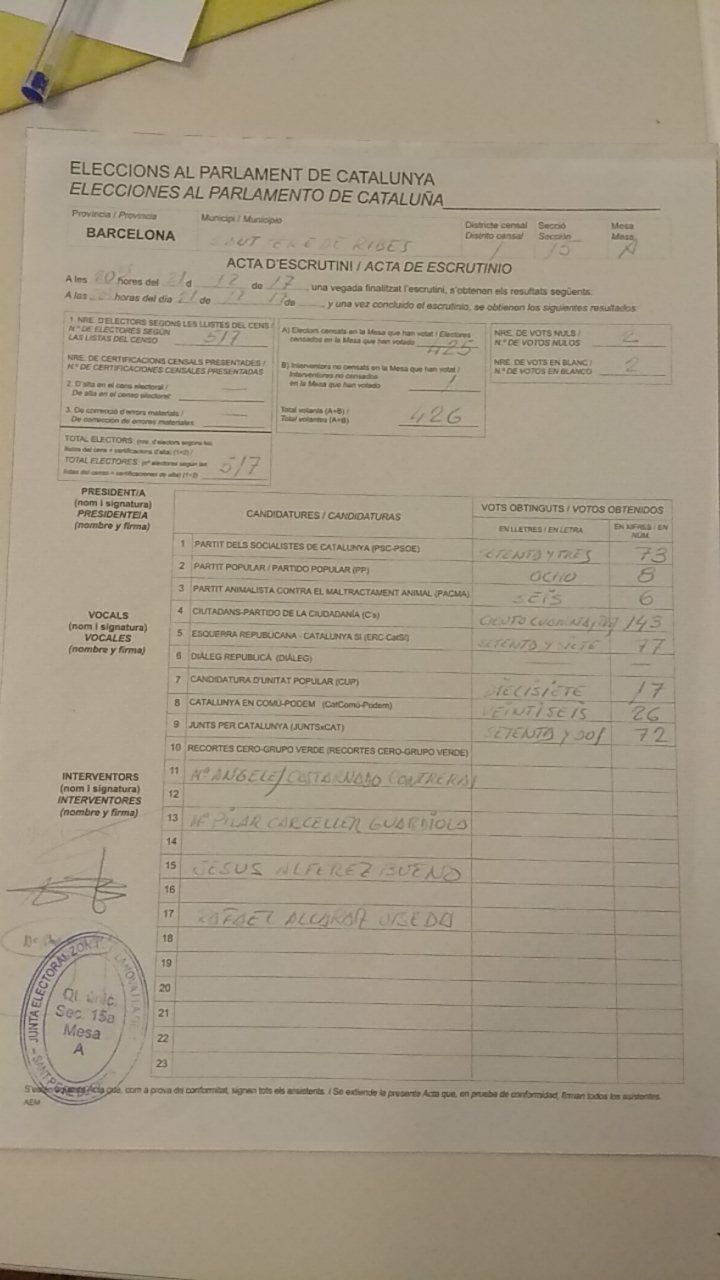 ELECCIONS AL PARLAMENT DE CATALUNYA
ELECCIONES AL PARLAMENTO DE CATALUÑA
Provincia / Provincia Municipi / Municipio Districte censal Secció Mesa
Distrito censal Sección Mesa
BARCELONA SANT PERE DE RIBES 1 15 A
ACTA D'ESCRUTINI / ACTA DE ESCRUTINIO
A les 20 hores del 21 d 12 de 17, una vegada finalitzat l'escrutini, s'obtenen els resultats següents:
A las horas del día 21 de 12 17 de , y una vez concluido el escrutinio, se obtienen los siguientes resultados:
1. NRE. D'ELECTORS SEGONS LES LLISTES DEL CENS /
N.º DE ELECTORES SEGÚN
LAS LISTAS DEL CENSO 517
NRE. DE CERTIFICACIONS CENSALS PRESENTADES /
N.º DE CERTIFICACIONES CENSALES PRESENTADAS
2. D'alta en el cens electoral /
De alta en el censo electoral:
3. De correcció d'errors materials /
De corrección de errores materiales:
TOTAL ELECTORS: (nre. d'electors segons les
llistes del cens + certificacions d'alta) (1+2) /
TOTAL ELECTORES: (nº electores según las
listas del censo + certificaciones de alta) (1+2) 517
A) Electors censats en la Mesa que han votat / Electores
censados en la Mesa que han votado 425
B) Interventors no censats en la Mesa que han votat /
Interventores no censados
en la Mesa que han votado 1
Total votants (A+B) /
Total votantes (A+B) 426
NRE. DE VOTS NULS /
N.º DE VOTOS NULOS 2
NRE. DE VOTS EN BLANC /
N.º DE VOTOS EN BLANCO 2
PRESIDENT/A
(nom i signatura)
PRESIDENTE/A
(nombre y firma)
VOCALS
(nom i signatura)
VOCALES
(nombre y firma)
INTERVENTORS
(nom i signatura)
INTERVENTORES
(nombre y firma)
CANDIDATURES / CANDIDATURAS VOTS OBTINGUTS / VOTOS OBTENIDOS
EN LLETRES / EN LETRA EN XIFRES / EN NÚM.
1 PARTIT DELS SOCIALISTES DE CATALUNYA (PSC-PSOE) SETENTA Y TRES 73
2 PARTIT POPULAR / PARTIDO POPULAR (PP) OCHO 8
3 PARTIT ANIMALISTA CONTRA EL MALTRACTAMENT ANIMAL (PACMA) SEIS 6
4 CIUTADANS-PARTIDO DE LA CIUDADANÍA (C's) CIENTO 143
5 ESQUERRA REPUBLICANA - CATALUNYA SÍ (ERC-CatSí) SETENTA Y SIETE 77
6 DIÀLEG REPUBLICÀ (DIÀLEG) —
7 CANDIDATURA D'UNITAT POPULAR (CUP) DIECISIETE 17
8 CATALUNYA EN COMÚ-PODEM (CatComú-Podem) VEINTISEIS 26
9 JUNTS PER CATALUNYA (JUNTSxCAT) SETENTA Y DOS 72
10 RECORTES CERO-GRUPO VERDE (RECORTES CERO-GRUPO VERDE)
11 Mª ANGELES CONTRERAS
12
13 Mª PILAR CARCELLER GUARDIOLA
14
15 JESUS ALFEREZ BUENO
16
17 RAFAEL ALCARAZ UBEDA
18
19
20
21
22
23
JUNTA ELECTORAL ZONA
VILANOVA I LA
SANT PERE DE
Sec. 15a
Mesa
A
Acta que, com a prova de conformitat, signen tots els assistents. / Se extiende la presente Acta que, en prueba de conformidad, firman todos los asistentes.
AEM